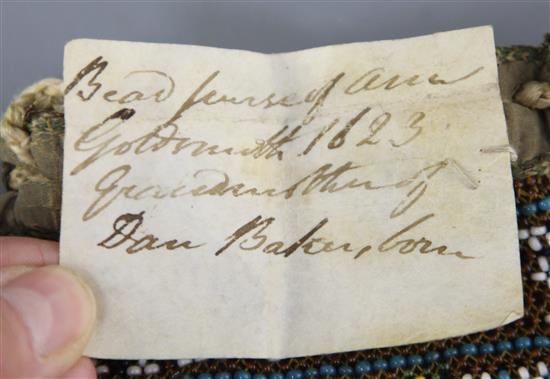 Bead purse of Ann
Goldsmith 1623
grandmother of
Dan Baker, born